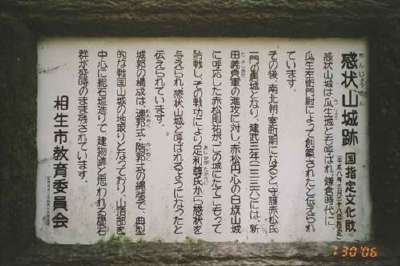 感状山城跡 国指定文化財
感状山城は瓜生城とも呼ばれ、鎌倉時代に
瓜生左衛門尉によって創築されたと伝えられ
ています。
その後、南北朝・室町期になると守護赤松氏
一門の属城となり、建武三年(一三三六)には、新
田義貞軍の進攻に対し、赤松円心の白旗山城
に呼応した赤松則祐がこの城にたてこもって
防戦し、その戦功により足利尊氏から「感状」を
与えられ、感状山城と呼ばれるようになったと
伝えられています。
城郭の構成は、連郭式・階郭式の縄張で、典型
的な戦国山城の地取りとなっており、山頂部を
中心に総石垣造りで、建物跡と思われる礎石
群が盛時のまま残されています。
相生市教育委員会
1 30 '06